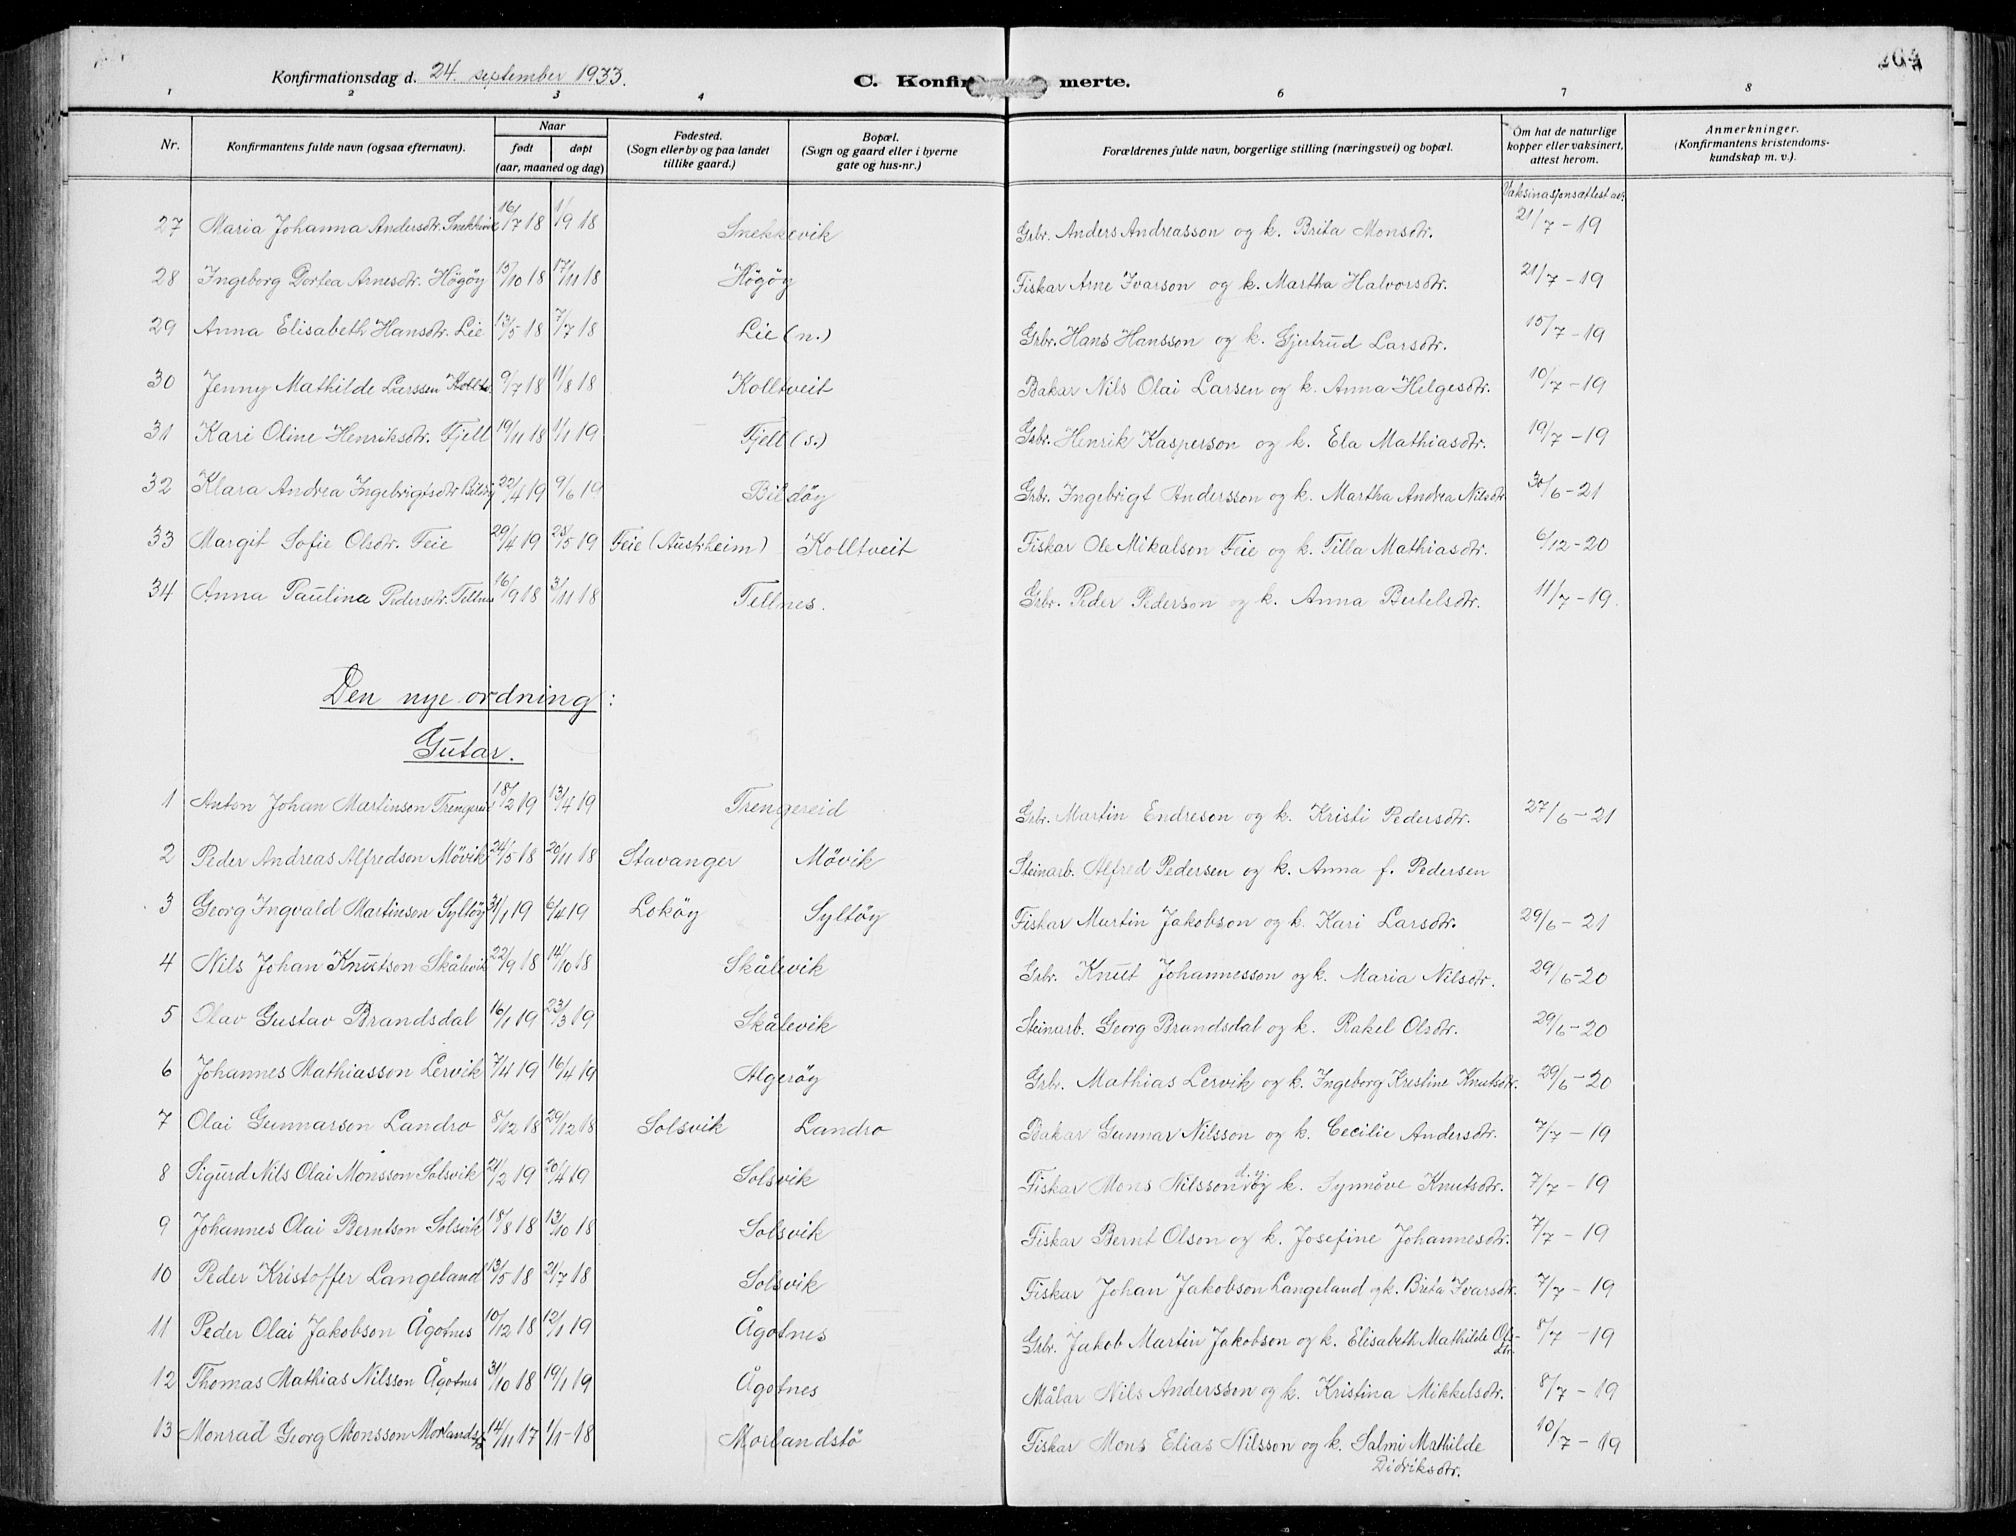 Konfirmationsdag d. 24. september 1933.
C. Konfirmerte.
264
1 2 3 4 6 7 8
Nr.
Konfirmantens fulde navn (ogsaa efternavn).
Naar
født døpt
(aar, maaned og dag)
Fødested.
(Sogn eller by og paa landet
tillike gaard.)
Bopæl.
(Sogn og gaard eller i byerne
gate og hus-nr.)
Forældrenes fulde navn, borgerlige stilling (næringsvei) og bopæl.
Om hat de naturlige
kopper eller vaksinert,
attest herom.
Anmerkninger.
(Konfirmantens kristendoms-
kundskap m. v.).
Vaksinasjonsattest av:
27 Maria Johanna Andersdtr. Snekkevik 16/7 18 1/9 18 Snekkevik Grbr. Anders Andreasson og k. Brita Monsdtr. 21/7 - 19
28 Ingeborg Dortea Arnesdtr. Høgøy 15/10 18 17/11 18 Høgøy Fiskar Arne Ivarson og k. Martha Halvorsdtr. 21/7 - 19
29 Anna Elisabeth Hansdtr. Lie 13/5 18 7/7 18 Lie (n.) Grbr. Hans Hansson og k. Gjertrud Larsdtr. 15/7 - 19
30 Jenny Mathilde Larssen Kolltv. 9/7 18 11/8 18 Kolltveit Bakar Nils Olai Larsen og k. Anna Helgesdtr. 10/7 - 19
31 Kari Oline Henriksdtr. Fjell 19/11 18 1/1 19 Fjell (s.) Grbr. Henrik Kasperson og k. Ela Mathiasdtr. 19/7 - 19
32 Klara Andrea Ingebrigtsdtr Bildøy 22/4 19 9/6 19 Bildøy Grbr. Ingebrigt Andersson og k. Martha Andrea Nilsdtr 30/6 - 21
33 Margit Sofie Olsdtr. Feie 29/4 19 28/5 19 Feie (Austrheim) Kolltveit Fiskar Ole Mikalson Feie og k. Tilla Mathiasdtr. 6/12 - 20
34 Anna Paulina Pedersdtr. Tellnes 16/9 18 3/11 18 Tellnes. Grbr. Peder Pederson og k. Anna Bertelsdtr. 11/7 - 19.
Den nye ordning:
Gutar.
1 Anton Johan Martinson Trengereid 18/2 19 13/4 19 Trengereid Grbr. Martin Endreson og k. Kristi Pedersdtr. 27/6 - 21
2 Peder Andreas Alfredson Møvik 24/5 18 20/11 18 Stavanger Møvik Steinarb. Alfred Pedersen og k. Anna f. Pedersen
3 Georg Ingvald Martinson Syltøy 31/1 19 6/4 19 Lokøy Syltøy Fiskar Martin Jakobson og k. Kari Larsdtr. 29/6 - 21
4 Nils Johan Knutson Skålevik 22/9 18 14/10 18 Skålevik Grbr. Knut Johannesson og k. Maria Nilsdtr. 29/6 - 20
5 Olav Gustav Brandsdal 16/1 19 23/3 19 Skålevik Steinarb. Georg Brandsdal og k. Rakel Olsdtr. 29/6 - 20
6 Johannes Mathiasson Lervik 7/4 19 16/4 19 Algerøy Grbr. Mathias Lervik og k. Ingeborg Kristine Knutsdtr. 29/6 - 20
7 Olai Gunnarson Landro 8/12 18 29/12 18 Solsvik Landro Bakar Gunnar Nilsson og k. Cecilie Andersdtr. 7/7 - 19
8 Sigurd Nils Olai Monsson Solsvik 21/2 19 20/4 19 Solsvik Fiskar Mons Nilsson d.y. og k. Synnøve Knutsdtr. 7/7 - 19
9 Johannes Olai Berntson Solsvik 18/8 18 13/10 18 Solsvik Fiskar Bernt Olson og k. Josefine Johannesdtr. 7/7 - 19
10 Peder Kristoffer Langeland 13/5 18 21/7 18 Solsvik Fiskar Johan Jakobson Langeland og k. Brita Ivarsdtr. 7/7 - 19
11 Peder Olai Jakobson Ågotnes 10/12 18 12/1 19 Ågotnes Grbr. Jakob Martin Jakobson og k. Elisabeth Mathilde Ols-
dtr. 8/7 - 19
12 Thomas Mathias Nilsson Ågotnes 31/10 18 19/1 19 Ågotnes Målar Nils Andersson og k. Kristina Mikkelsdtr. 8/7 - 19
13 Monrad Georg Monsson Morlandstø 14/11 17 1/1 - 18 Morlandstø Fiskar Mons Elias Nilsson og k. Salmi Mathilde
Didriksdtr. 10/7 - 19